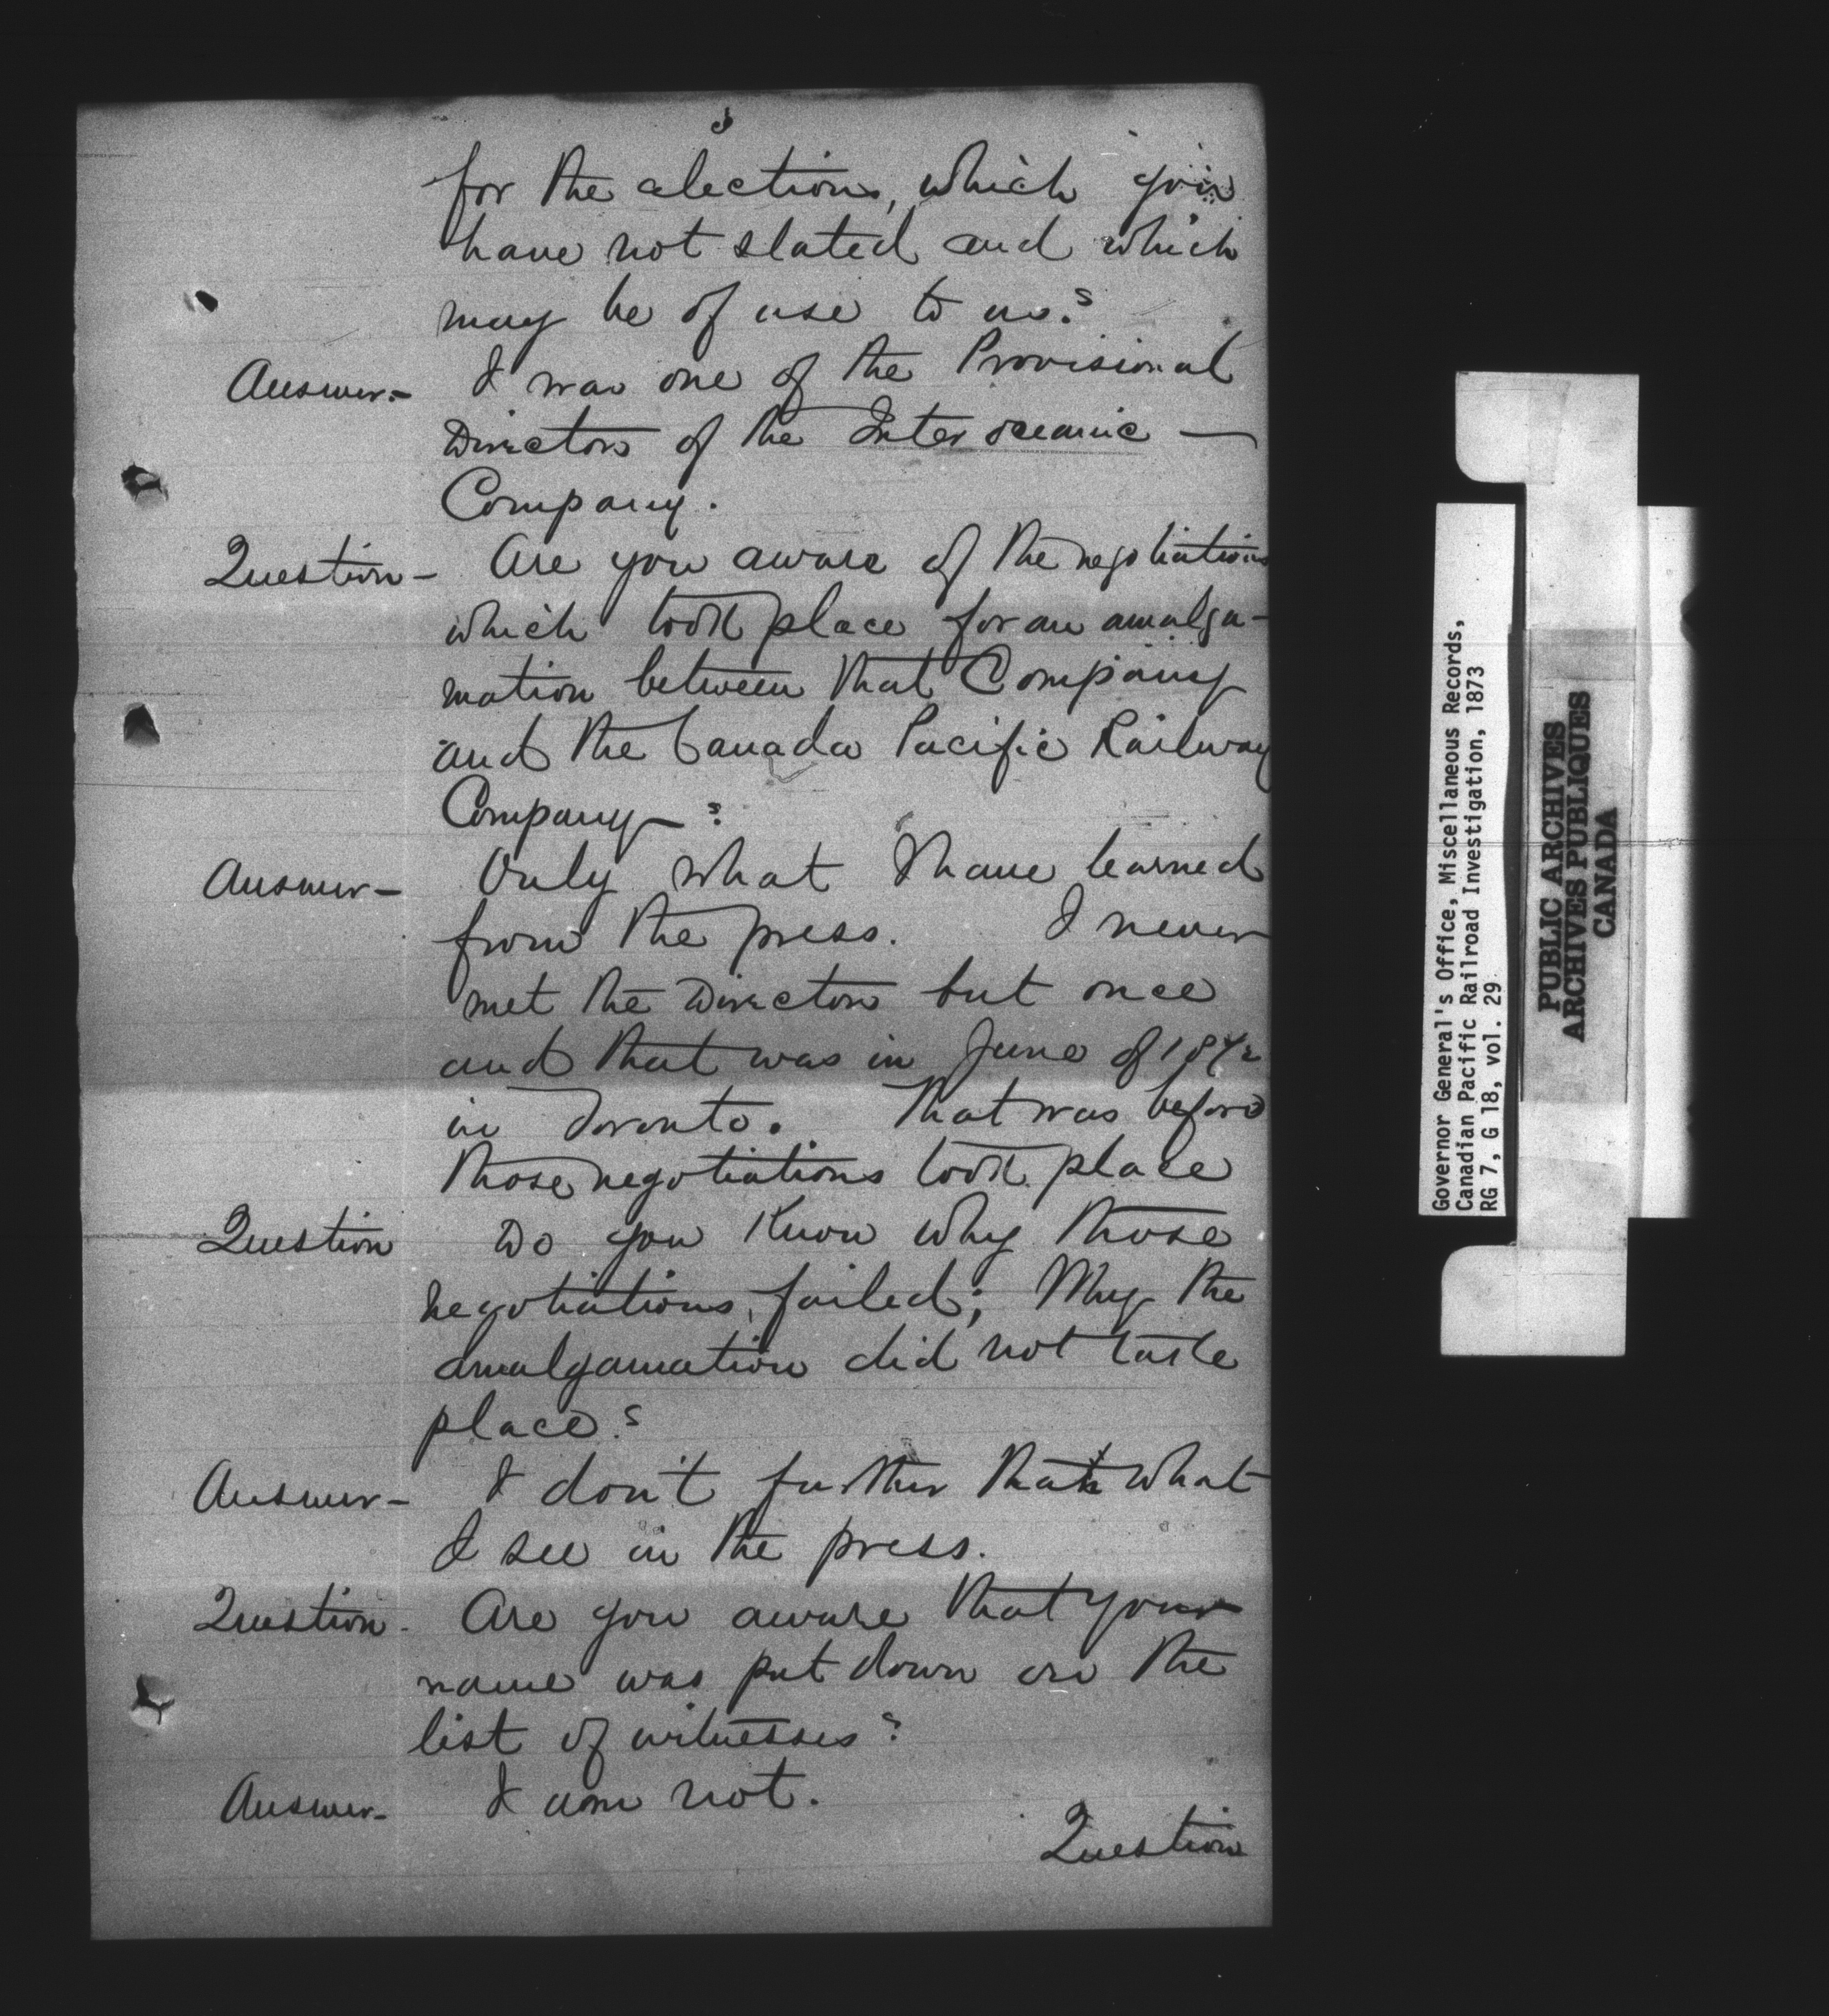 3
for the elections, which you
have not stated and which
may be of use to us?
Answer.- I was one of the Provisional
Directors of the Interoceanic —
Company.
Question - Are you aware of the negotiations
which took place for an amalga-
mation between that Company
and the Canada Pacific Railway
Company?
Answer - Only what I have learned
from the press. I never
met the Directors but once
and that was in June of 1872
in Toronto. That was before
those negotiations took place
Question Do you know why those
negotiations failed; Why the
amalgamation did not take
place?
Answer - I don't further than what
I see in the press.
Question - Are you aware that your
name was put down on the
list of witnesses?
Answer - I am not.
Question
Governor General's Office, Miscellaneous Records,
Canadian Pacific Railroad Investigation, 1873
RG 7, G 18, vol. 29
PUBLIC ARCHIVES
ARCHIVES PUBLIQUES
CANADA